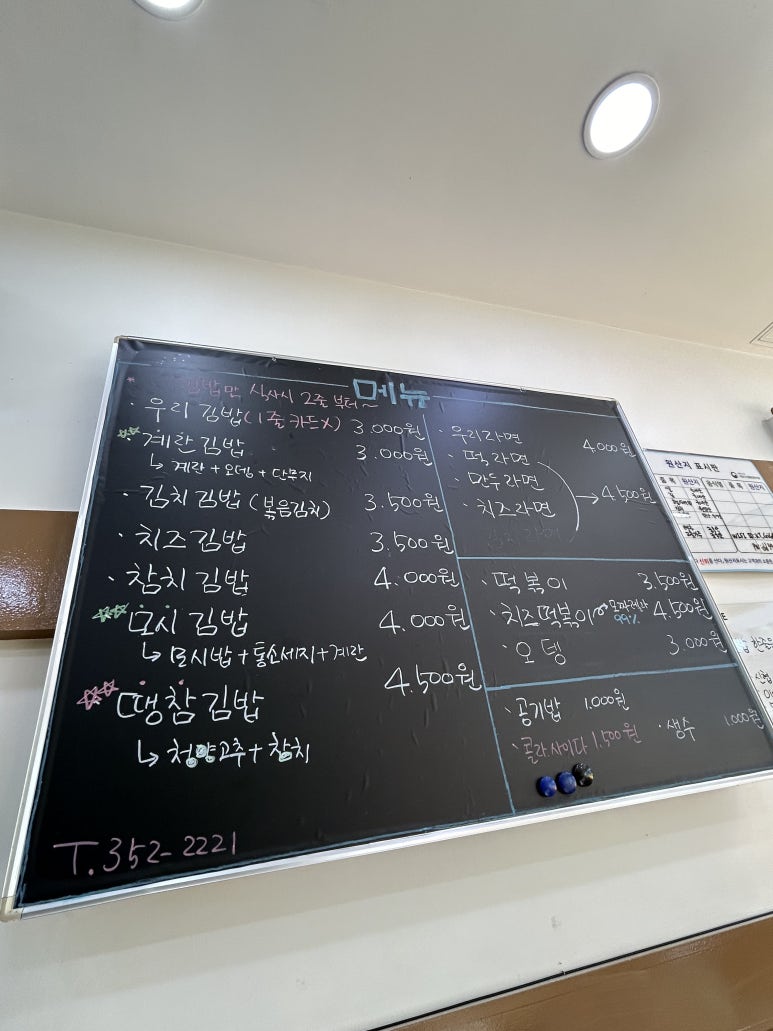 메뉴
* 김밥만 식사시 2줄 부터~
· 우리 김밥 (1줄 카드X) 3.000원
· 계란 김밥 3.000원
↳ 계란 + 오뎅 + 단무지
· 김치 김밥 (볶음김치) 3.500원
· 치즈 김밥 3.500원
· 참치 김밥 4.000원
모시 김밥 4.000원
↳ 모시밥 + 통소세지 + 계란
땡참 김밥 4.500원
↳ 청양고추 + 참치
T. 352-2221
· 우리라면 4.000원
· 떡라면
· 만두라면 → 4.500원
· 치즈라면
김치라면
· 떡볶이 3.500원
· 치즈떡볶이 모짜렐라 99% 4.500원
· 오뎅 3.000원
· 공기밥 1.000원
· 콜라.사이다 1.500원 · 생수 1.000원
원산지 표시판